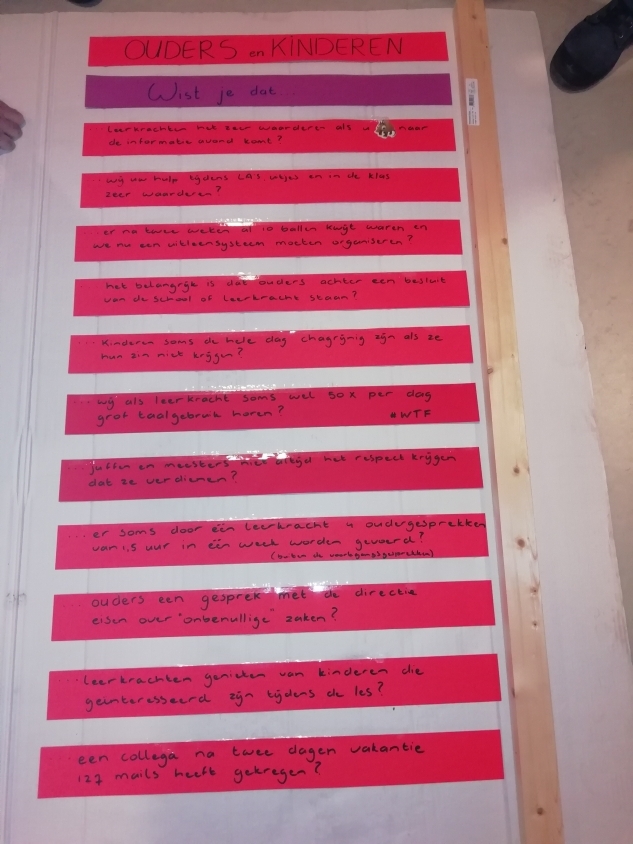 OUDERS en KINDEREN
Wist je dat...
...leerkrachten het zeer waarderen als u naar
de informatie avond komt?
...wij uw hulp tijdens LA's uitjes en in de klas
zeer waarderen?
...er na twee weken al 10 ballen kwijt waren en
we nu een uitleensysteem moeten organiseren?
...het belangrijk is dat ouders achter een besluit
van de school of leerkracht staan?
...Kinderen soms de hele dag chagrijnig zijn als ze
hun zin niet krijgen?
...wij als leerkracht soms wel 50x per dag
grof taalgebruik horen? #WTF
...juffen en meesters niet altijd het respect krijgen
dat ze verdienen?
...er soms door één leerkracht 4 oudergesprekken
van 1,5 uur in één week worden gevoerd?
(buiten de voortgangsgesprekken)
...ouders een gesprek met de directie
eisen over "onbenullige" zaken?
...leerkrachten genieten van kinderen die
geïnteresseerd zijn tijdens de les?
...een collega na twee dagen vakantie
127 mails heeft gekregen?